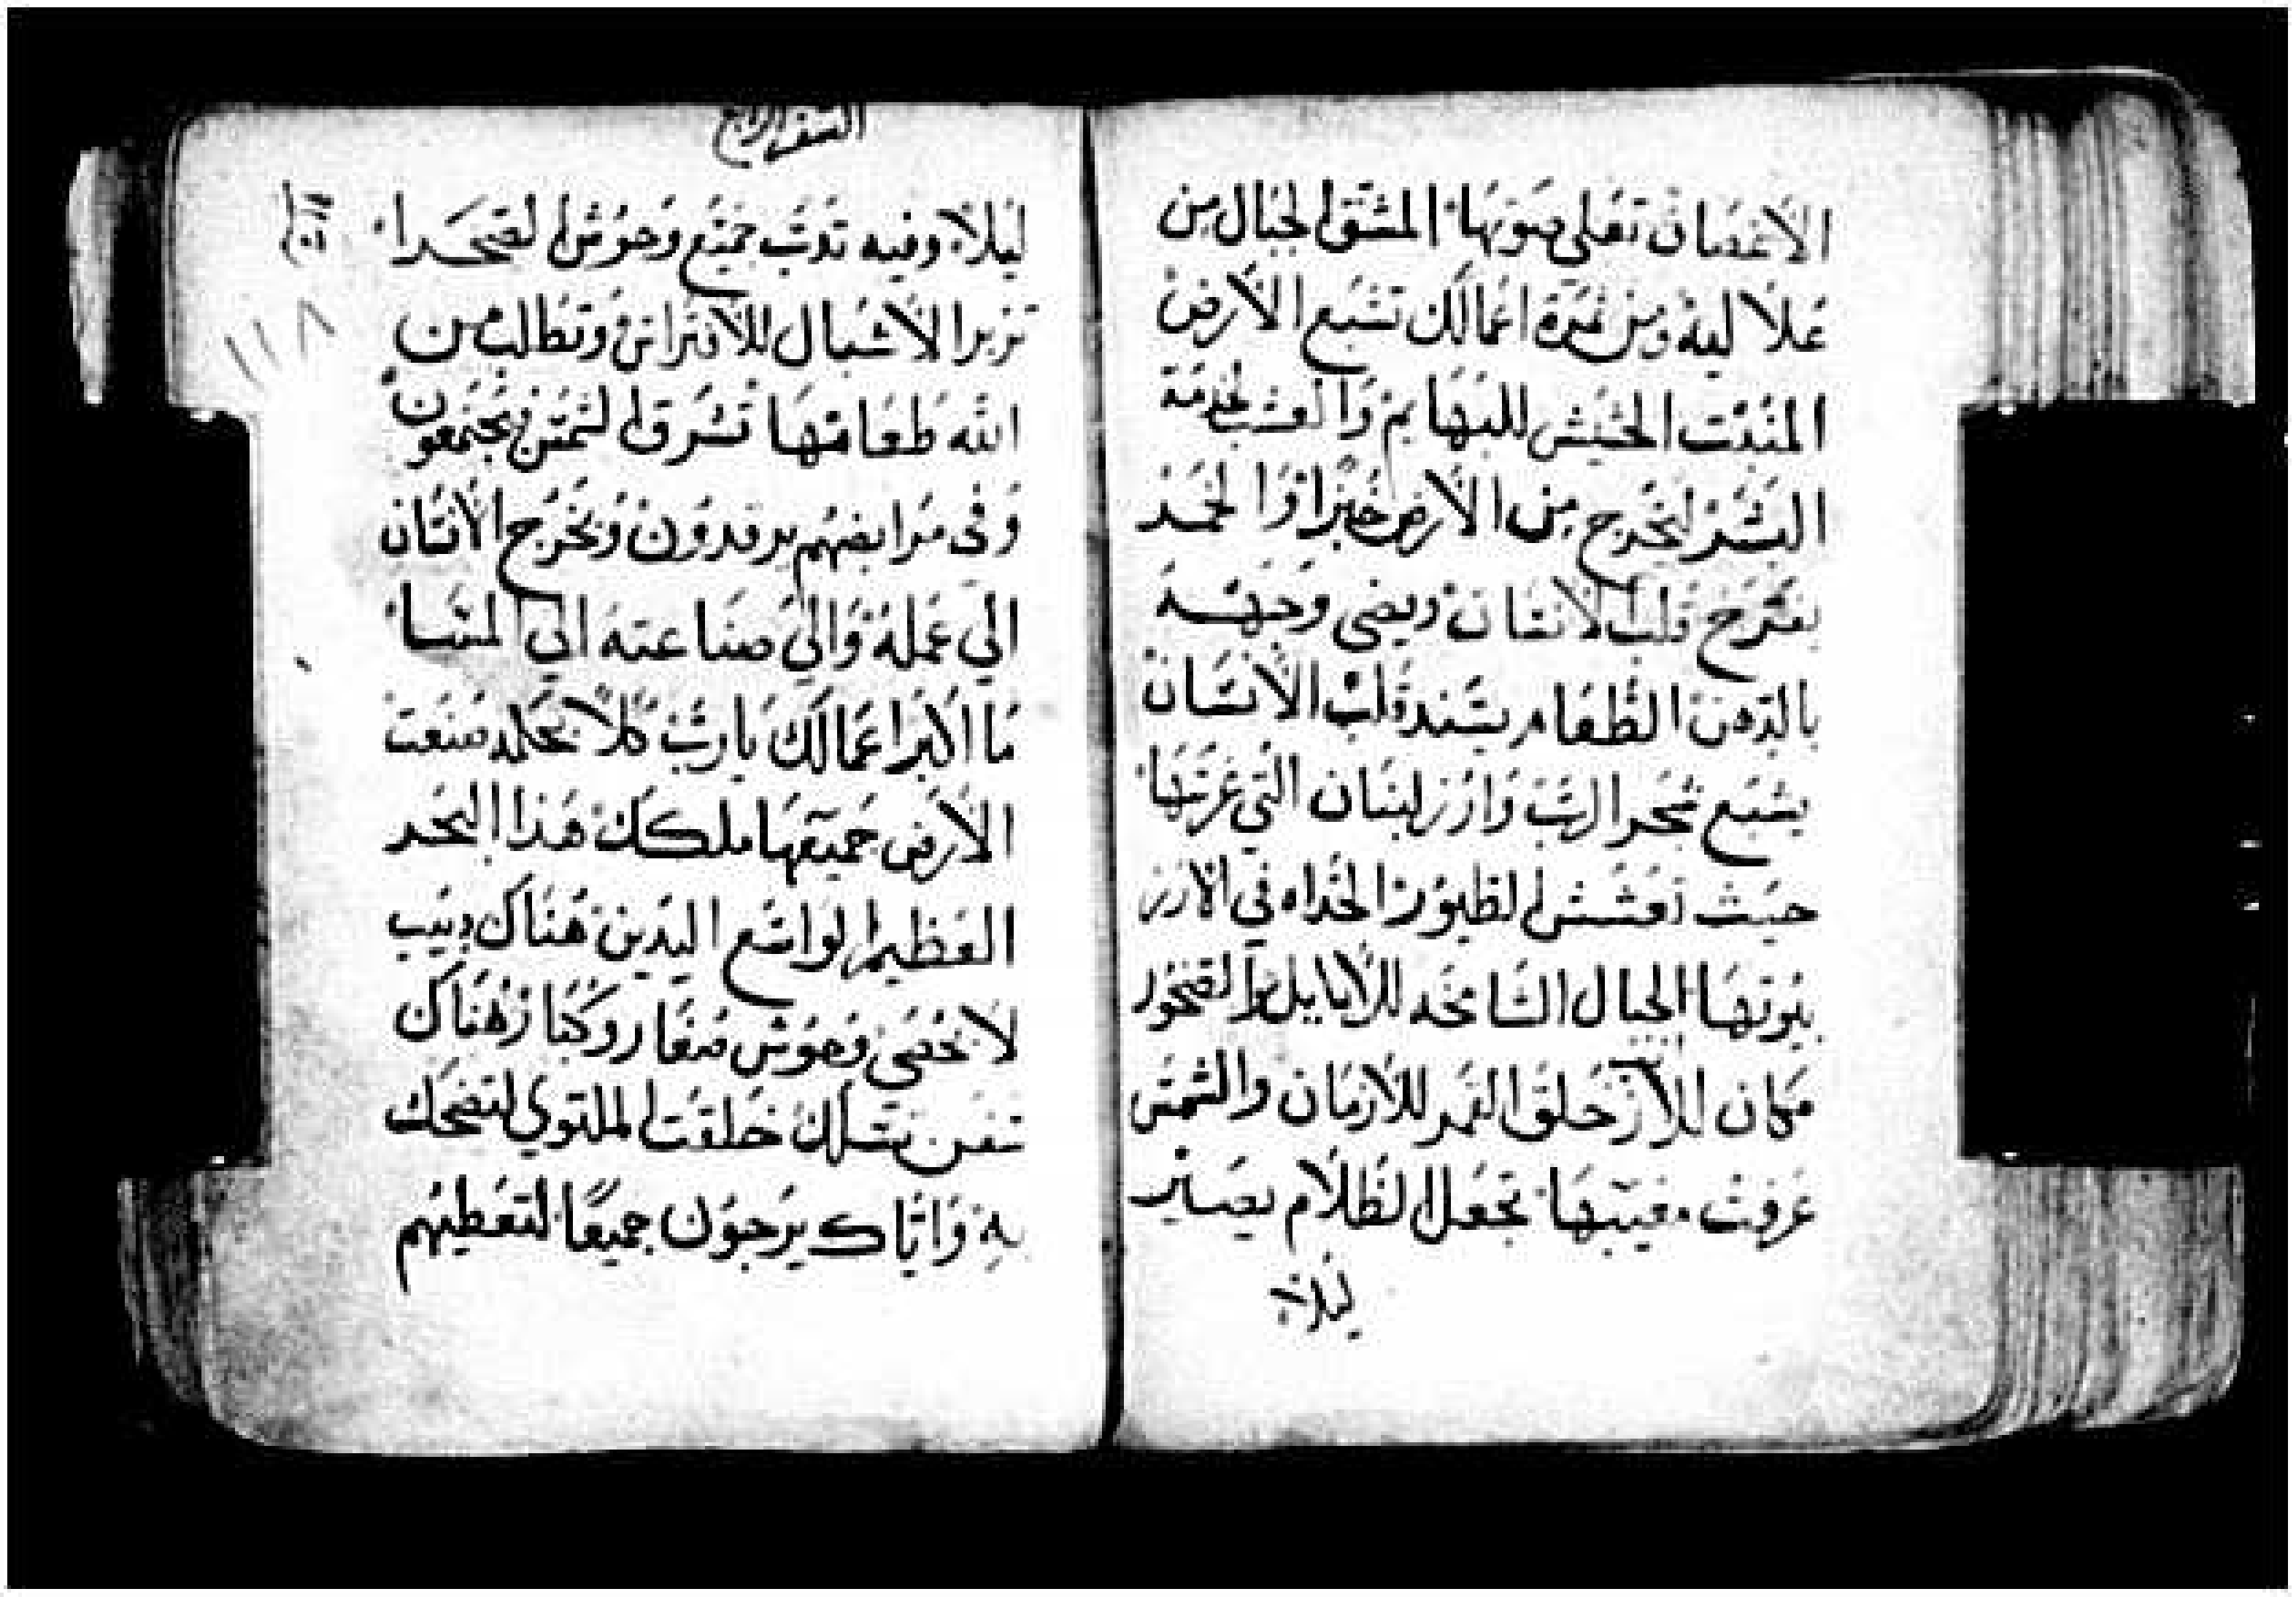 الأغصان تعلي صوتها المسقي الجبال من
علاليه ومن ثمرة اعمالك تشبع الأرض
المنبت الحشيش للبهايم والعشب لخدمة
البشر ليخرج من الأرض خبزا والخمر
يفرح قلب الانسان ويضي وجهه
بالدهن الطعام يسند قلب الانسان
يشبع شجر الرب وارز لبنان التي غرتها
حيث تعشش الطيور الحداه في الارز
بيوتها الجبال الشامخه للأيايل والصخور
مكان للأرنب خلق القمر للأزمان والشمس
عرفت مغيبها تجعل الظلام يصير
ليلا
السفر الرابع
ليلا وفيه تدب جميع وحوش الصحرا
تزير الأشبال للافتراس وتطلب من
الله طعامها تشرق الشمس فيجتمعون
وفي مرابضهم يرقدون ويخرج الأنسان
الي عمله والي صناعته الي المسا
ما اكبر اعمالك يا رب كلا بحكمه صنعت
الأرض جميعها ملكك هذا البحر
العظيم الواسع اليدين هناك دبيب
لا تحصي وحوش صغار وكبار هناك
سفن تسلك خلقت الملتوي لتضحك
به واياك يرجون جميعا لتعطيهم
١١٨